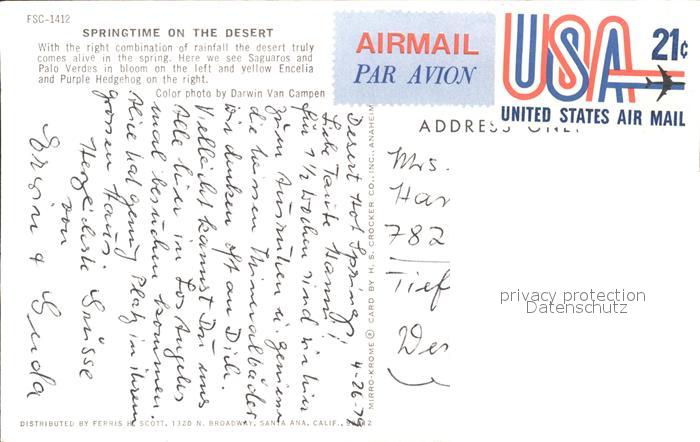 FSC-1412
SPRINGTIME ON THE DESERT
With the right combination of rainfall the desert truly
comes alive in the spring. Here we see Saguaros and
Palo Verdes in bloom on the left and yellow Encelia
and Purple Hedgehog on the right.
Color photo by Darwin Van Campen
AIRMAIL
PAR AVION
USA 21¢
UNITED STATES AIR MAIL
ADDRESS ONLY
Desert Hot Springs
4-26-79
Liebe Tante Hanni!
für 1½ Wochen sind wir hier
zum Ausruhen u. geniessen
die heissen Mineralbäder
Wir denken oft an Dich.
Vielleicht kannst Du uns
Alle hier in Los Angeles
mal besuchen kommen.
Alice hat genug Platz in ihrem
grossen Haus.
Herzlichste Grüsse
von
Erwin & Gerda
MIRRO-KROME ® CARD BY H. S. CROCKER CO., INC., ANAHEIM
Mrs.
Han
782
Tief
Wes
privacy protection
Datenschutz
DISTRIBUTED BY FERRIS H. SCOTT, 1320 N. BROADWAY, SANTA ANA, CALIF.